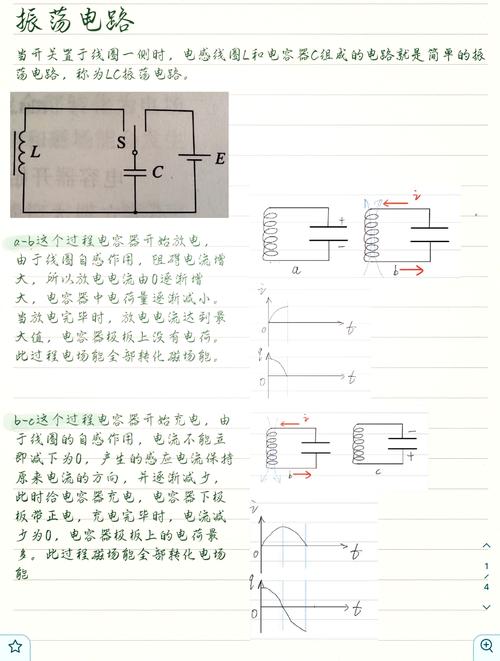 振荡电路
当开关置于线圈一侧时，电感线圈L和电容器C组成的电路就是简单的振
荡电路，称为LC振荡电路。
L
S
C
E
i
+
-
a
b
a-b这个过程电容器开始放电，
由于线圈自感作用，阻碍电流增
大，所以放电电流由0逐渐增
大，电容器中电荷量逐渐减小。
当放电完毕时，放电电流达到最
大值，电容器极板上没有电荷。
此过程电场能全部转化磁场能。
i
0
t
q
0
t
b-c这个过程电容器开始充电，由
于线圈的自感作用，电流不能立
即减下为0，产生的感应电流保持
原来电流的方向，并逐渐减少，
此时给电容器充电，电容器下极
板带正电，充电完毕时，电流减
少为0，电容器极板上的电荷最
多。此过程磁场能全部转化电场
能
i
b
-
+
c
i
0
t
q
0
t
1
/
4